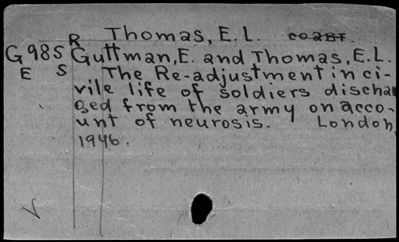 R Thomas, E. L. coaвт.
G985 Guttman, E. and Thomas, E. L.
E S The Re-adjustment in ci-
vile life of soldiers dischar
ged from the army on acco-
unt of neurosis. London,
1946.